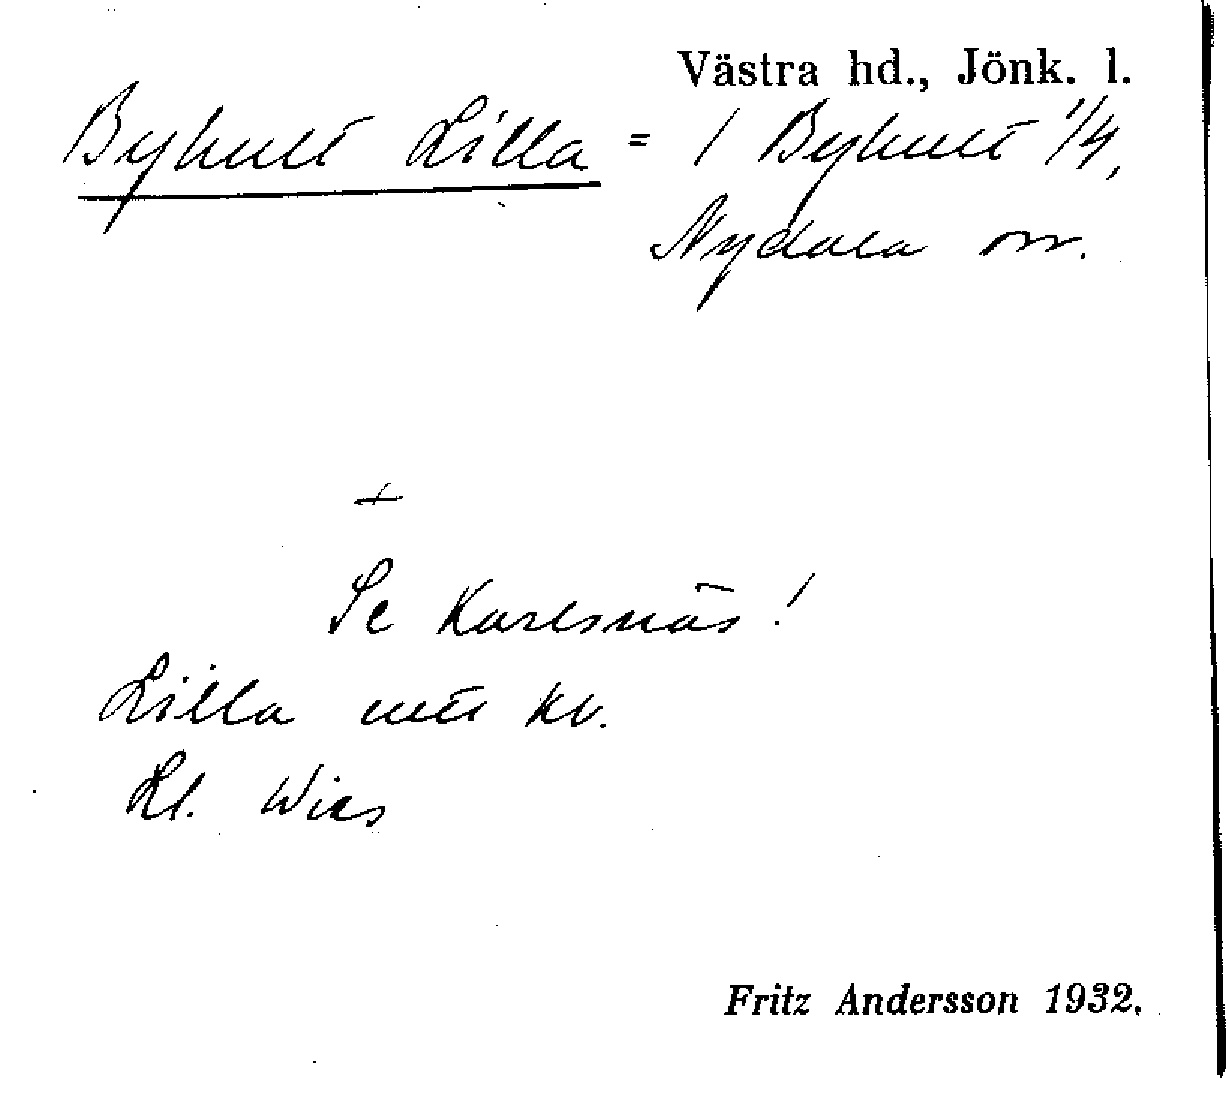 Västra hd., Jönk. l.
Byhult Lilla = 1 Byhult 1/4,
Nydala sn.
+
Se Karlsnäs!
Lilla utt kv.
Kl. Wies
Fritz Andersson 1932.